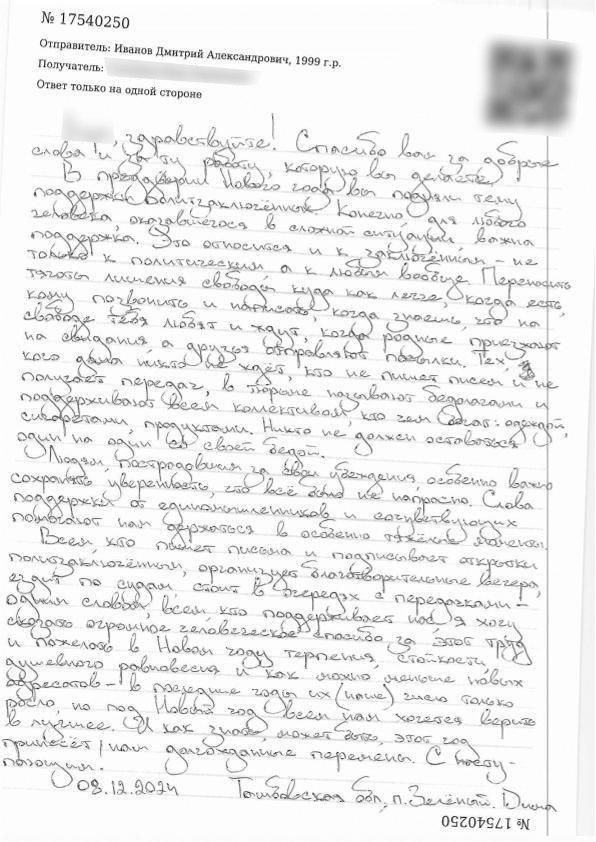 № 17540250
Отправитель: Иванов Дмитрий Александрович, 1999 г.р.
Получатель:
Ответ только на одной стороне
, здравствуйте! Спасибо вам за добрые
слова и за ту работу, которую вы делаете.
В преддверии Нового года вы подняли тему
поддержки политзаключённых. Конечно, для любого
человека, оказавшегося в сложной ситуации, важна
поддержка. Это относится и к заключённым – не
только к политическим, а к любым вообще. Переносить
тяготы лишения свободы куда как легче, когда есть,
кому позвонить и написать, когда знаешь, что на
свободе тебя любят и ждут, когда родные приезжают
на свидания, а друзья отправляют посылки. Тех,
кого дома никто не ждёт, кто не пишет писем и не
получает передач, в тюрьме называют бедолагами и
поддерживают всем коллективом, кто чем богат: одеждой,
сигаретами, продуктами. Никто не должен оставаться
один на один со своей бедой.
Людям, пострадавшим за свои убеждения, особенно важно
сохранять уверенность, что всё было не напрасно. Слова
поддержки от единомышленников и сочувствующих
помогают нам держаться в особенно тяжёлые моменты.
Всем, кто пишет письма и подписывает открытки
политзаключённым, организует благотворительные вечера,
ездит по судам, стоит в очередях с передачками –
одним словом, всем, кто поддерживает нас, я хочу
сказать огромное человеческое спасибо за этот труд
и пожелать в Новом году терпения, стойкости,
душевного равновесия и как можно меньше новых
адресатов – в последние годы их (наше) число только
росло, но под Новый год всем нам хочется верить
в лучшее. И как знать, может быть, этот год
принесёт нам долгожданные перемены. С насту-
пающим.
08.12.2024 Тамбовская обл., п. Зелёный. Дима
№ 17540250